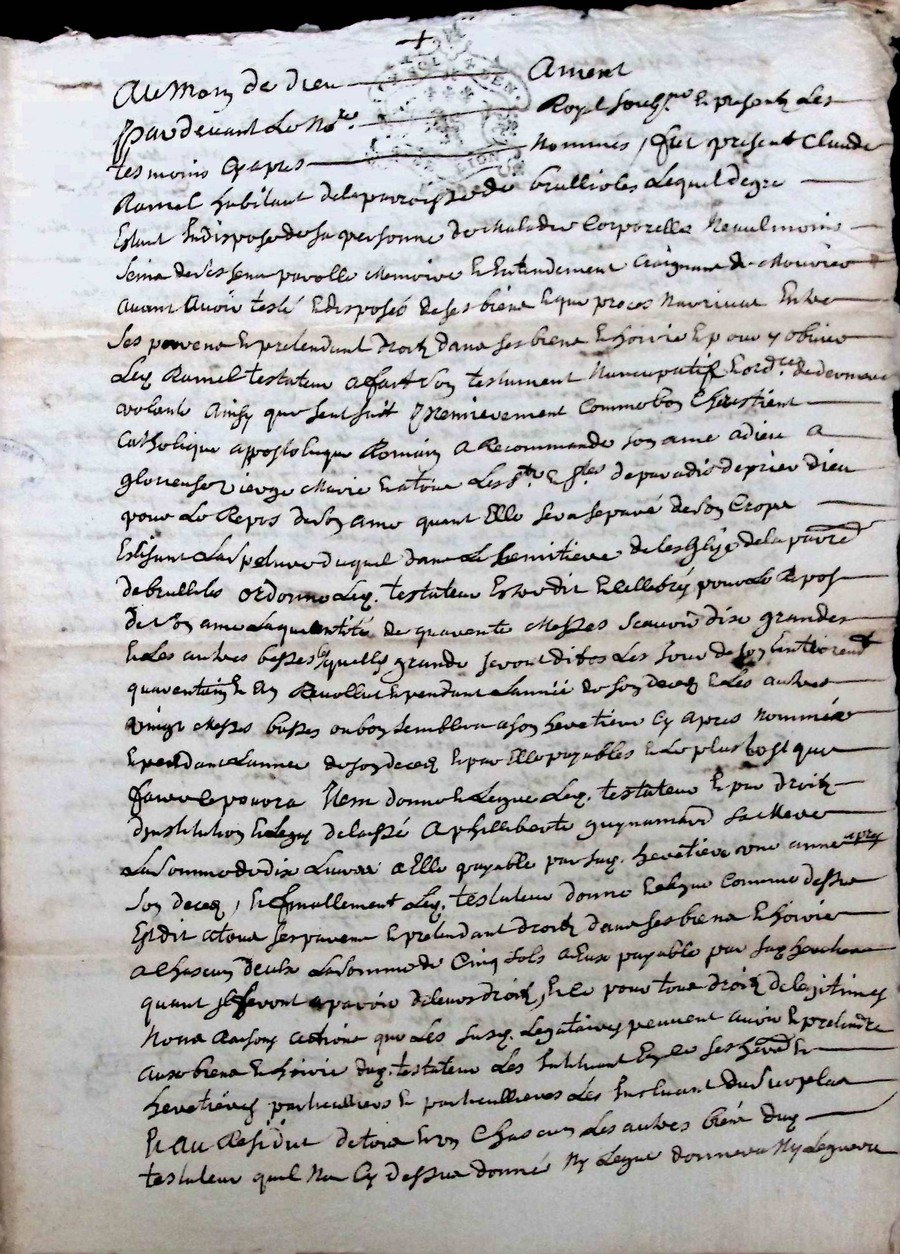 +
Au Nom de Dieu Ament
Pardevant Le No.re Royal soubz.né Et presentz Les
tesmoins Cy apres Nommes, fut present Claude
Ramel habitant de la parroisse de brullioles Lequel degre
Estant Indispose de sa personne de Maladie Corporelle Neaulmoins
seins de ses sens parolle Memoire Et Entendement Craignant de Mourir
avant avoir testé Et disposée de ses biens Et que proces Narrivat Entre
ses parens Et pretendant droitz dans ses biens Et hoirie Et pour y obvier
Leq. Ramel testateur a fait son testament Nuncupatif Et ord.ce de derniere
volonte Ainsy que sent suit Premierement Comme bon Chrestient
Catholique apostolique Romain A Recommande son ame a dieu a
glorieuse vierge Marie Et a tous Les s.tz Et s.tes de paradis de prier dieu
pour Le Repos de son ame quant Elle sera separé de son Crops
Eslisant La sepulture diquel dans Le semitiere de lesglize de la parred
de brullioles ordonne Leq. testateur Estre dit Et cellebrés pour Le Repos
de son ame La quentité de quarente Messes scauoir dix grandes
Et Les autres basses les quelles grande seront dites Les Jour de son Enterrement
quarentain Et An Revollut Et pendant Lannée de son deces Et Les autres
vingt Messes basses ou bon semblera a son heretiere Cy apres Nommée
Et pendant Lannee de son deces Et par Elle payables Et Le plus tost que
faire le poura Item donne Et Legue Leq. testateur Et par droitz
dinstitution Et Legz delaissé A philliberte guynamard sa Mere
La somme de dix Livres a Elle payable par saq. heretiere une anne apres
son deces, Et finallement Leq. testateur donne Et legue Comme dessus
Est dit a tous ses parens Et pretendant droitz dans ses biens Et hoirie
a Chascun deulx La somme de Cinq sols a Eux payable par saq heretiere
quant Jl feront aparoir de leurs droitz, Et Ce pour tous droitz de legitimes
Noms Raisons actions que Les susq. Legataires peuvent avoir Et pretendre
aux biens Et hoirie duq. testateur Les Instituant En Ce ses hered Et
heretieres particulliers Et particullieres Les Incluant du surplus
Et Au Residut de tous Et un Chascun Les autres biens duq
testateur quil Na Cy dessus donné Ny Legue donnera Ny Leguera